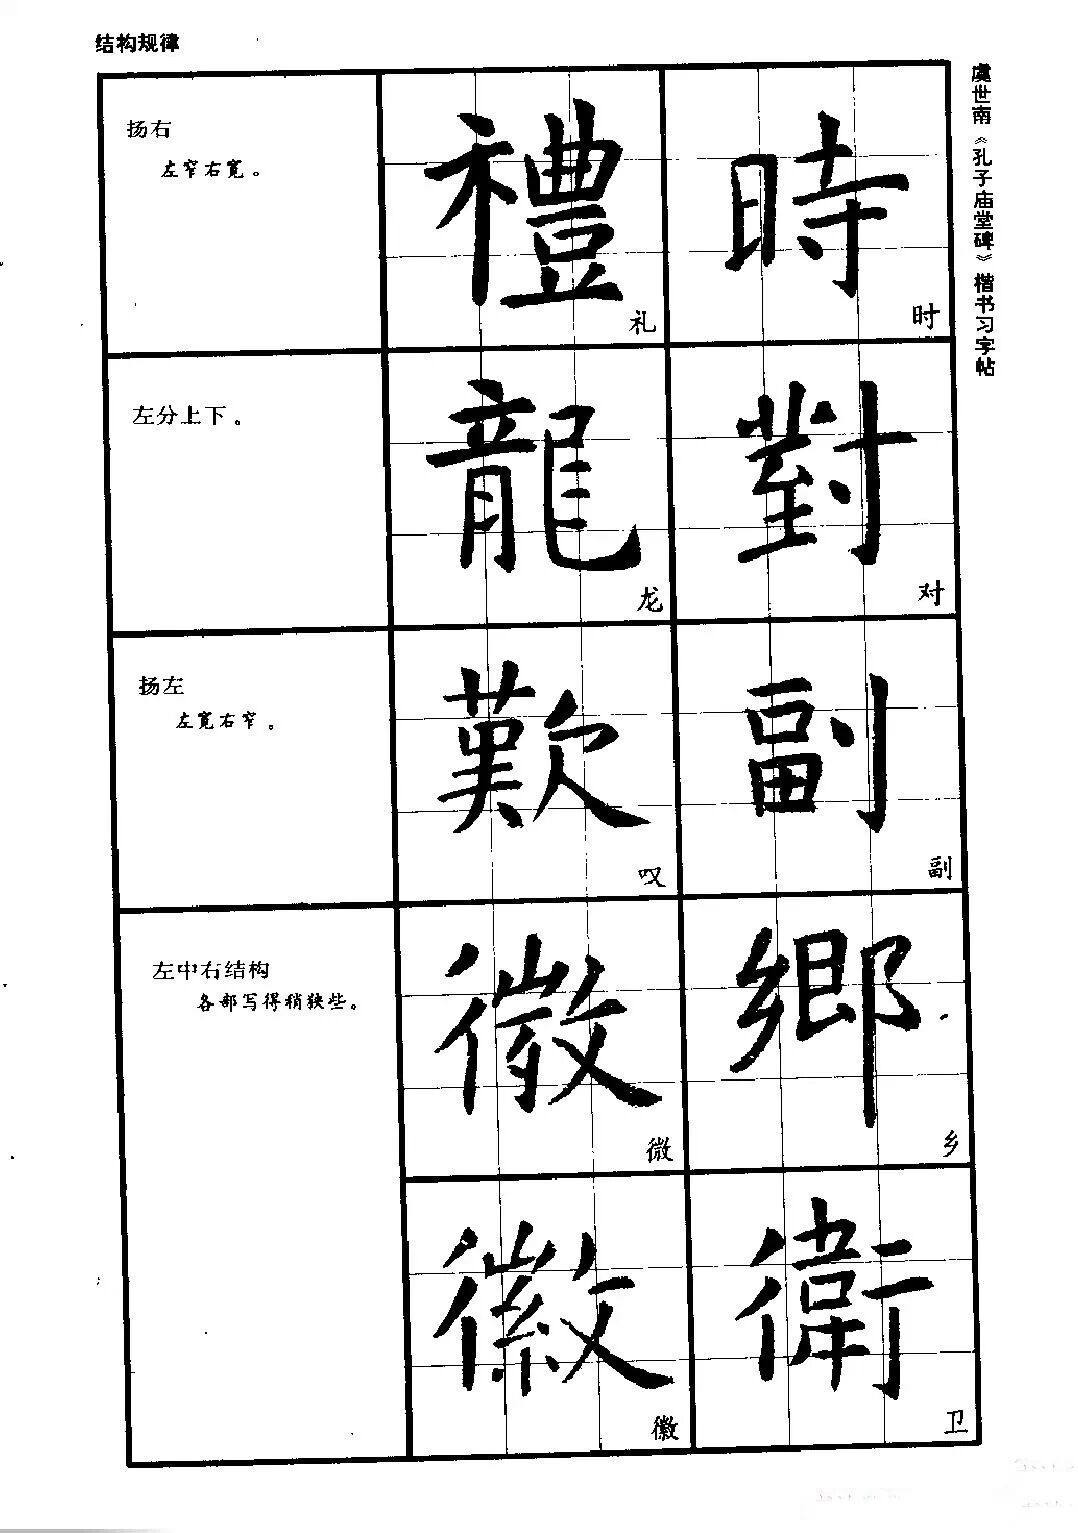 结构规律
虞世南《孔子庙堂碑》楷书习字帖
扬右
左窄右宽。
禮
礼
時
时
左分上下。
龍
龙
對
对
扬左
左宽右窄。
歎
叹
副
副
左中右结构
各部写得稍狭些。
微
微
鄉
乡
徽
徽
衛
卫